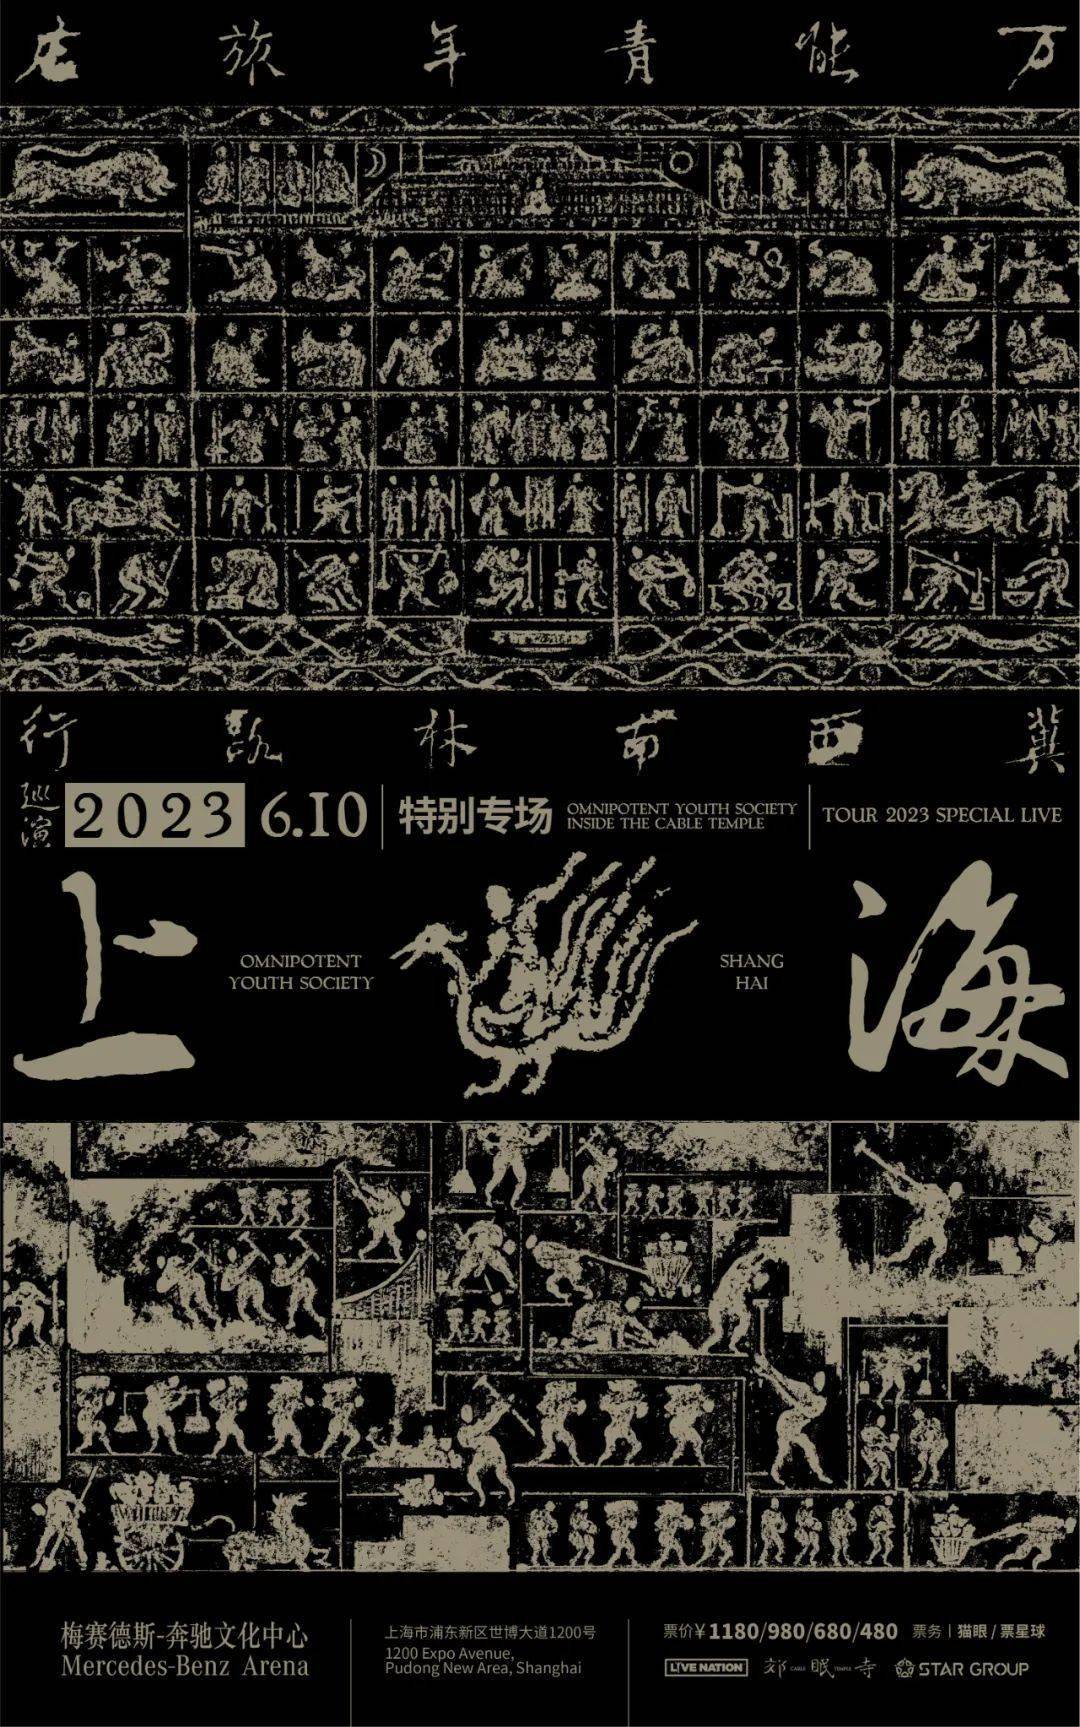 万能青年旅店
冀西南林路行
巡演
2023
6.10
特别专场
OMNIPOTENT YOUTH SOCIETY
INSIDE THE CABLE TEMPLE
TOUR 2023 SPECIAL LIVE
上海
OMNIPOTENT
YOUTH SOCIETY
SHANG
HAI
梅赛德斯-奔驰文化中心
Mercedes-Benz Arena
上海市浦东新区世博大道1200号
1200 Expo Avenue,
Pudong New Area, Shanghai
票价¥1180/980/680/480 票务|猫眼/票星球
LIVE NATION
郊眠寺
CABLE TEMPLE
STAR GROUP